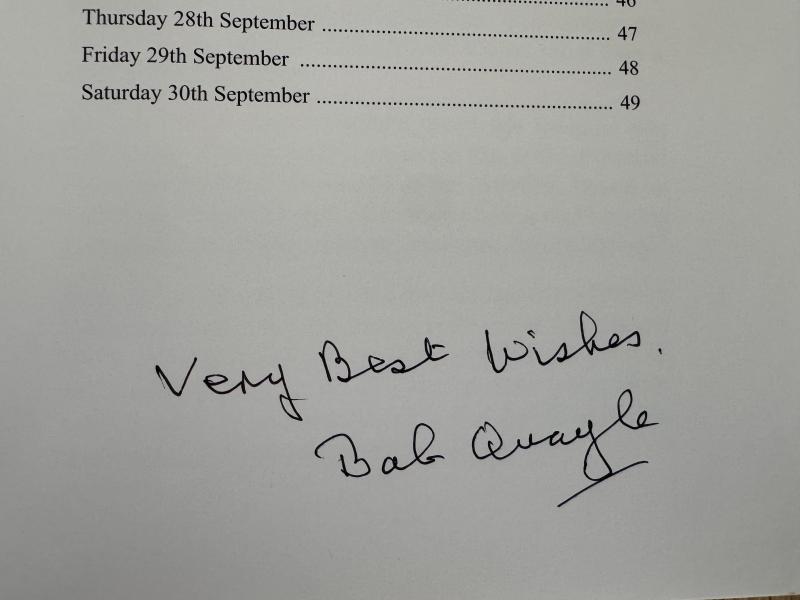 46
Thursday 28th September ........................................................ 47
Friday 29th September ............................................................ 48
Saturday 30th September ......................................................... 49
Very Best Wishes.
Bob Quayle